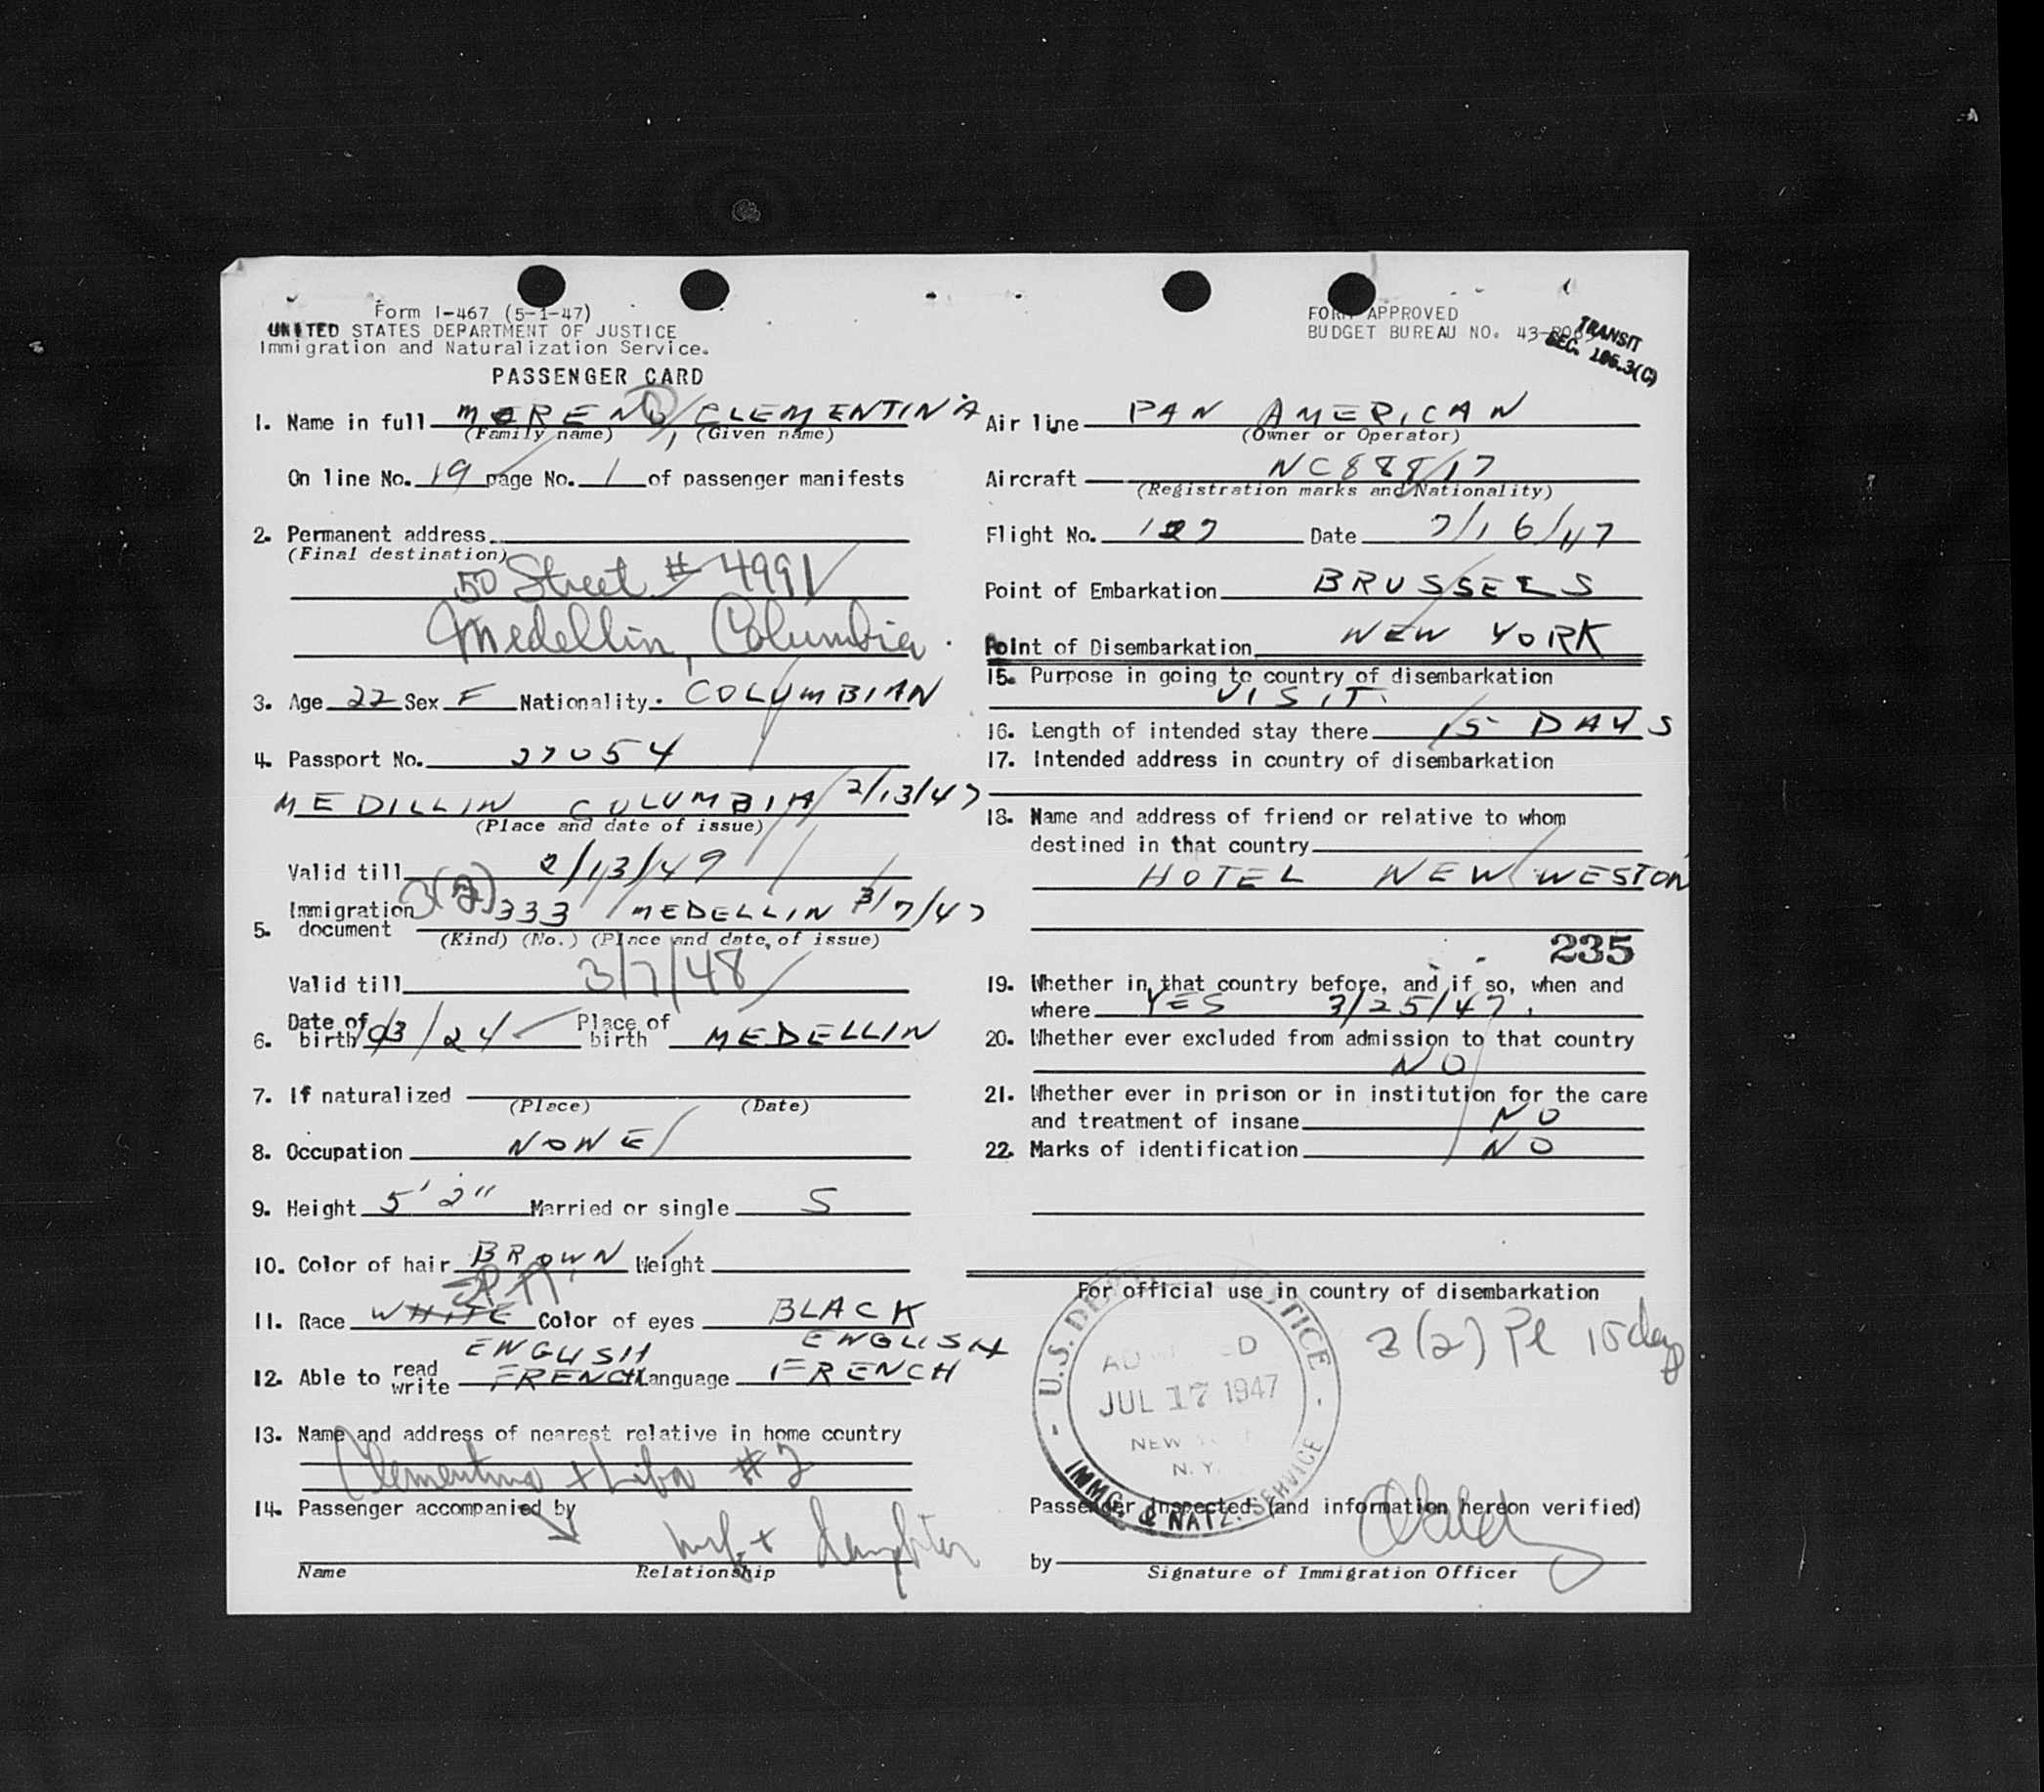 Form I-467 (5-1-47)
UNITED STATES DEPARTMENT OF JUSTICE
Immigration and Naturalization Service.
PASSENGER CARD
FORM APPROVED
BUDGET BUREAU NO. 43-
TRANSIT
SEC. 106.3(C)
1. Name in full MORENO, CLEMENTINA
(Family name) (Given name)
On line No. 19 page No. 1 of passenger manifests
2. Permanent address
(Final destination)
50 Street # 4991
Medellin, Columbia
3. Age 22 Sex F Nationality. COLUMBIAN
4. Passport No. 27054
MEDILLIN COLUMBIA 2/13/47
(Place and date of issue)
Valid till 2/13/49
5. Immigration document 3(2) 333 MEDELLIN 3/7/47
(Kind) (No.) (Place and date of issue)
Valid till 3/7/48
6. Date of birth /24 Place of birth MEDELLIN
7. If naturalized
(Place) (Date)
8. Occupation NONE
9. Height 5' 2" Married or single S
10. Color of hair BROWN Weight
11. Race WHITE Color of eyes BLACK
ENGLISH ENGLISH
12. Able to read write FRENCH Language FRENCH
13. Name and address of nearest relative in home country
Clementina # 2
14. Passenger accompanied by
daughter
Name Relationship
Air line PAN AMERICAN
(Owner or Operator)
Aircraft NC88817
(Registration marks and Nationality)
Flight No. 127 Date 7/16/47
Point of Embarkation BRUSSELS
Point of Disembarkation NEW YORK
15. Purpose in going to country of disembarkation
VISIT.
16. Length of intended stay there 15 DAYS
17. Intended address in country of disembarkation
18. Name and address of friend or relative to whom
destined in that country
HOTEL NEW WESTON
235
19. Whether in that country before, and if so, when and
where YES 3/25/47.
20. Whether ever excluded from admission to that country
NO
21. Whether ever in prison or in institution for the care
and treatment of insane NO
22. Marks of identification NO
For official use in country of disembarkation
U.S. DEPT. OF JUSTICE
ADMITTED
JUL 17 1947
NEW YORK
N.Y.
IMMG. & NATZ. SERVICE
3(2) Pl 15 days
Passenger inspected (and information hereon verified)
by
Signature of Immigration Officer